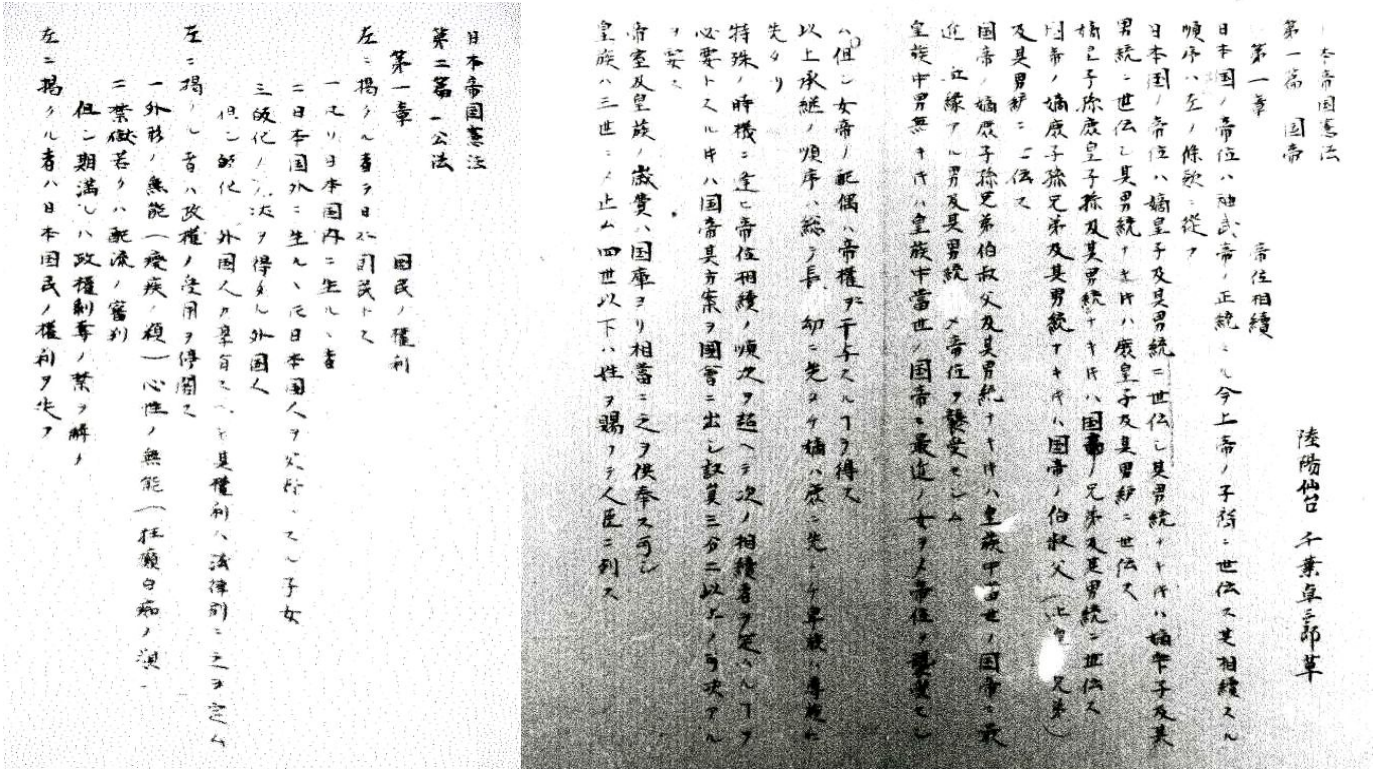 日本帝国憲法
第一篇 国帝
第一章 帝位相續
陸陽仙台 千葉卓三郎草
日本国ノ帝位ハ神武帝ノ正統タル今上帝ノ子裔ニ世伝ス其相續スル
順序ハ左ノ條款ニ従フ
日本国ノ帝位ハ嫡皇子及其男統ニ世伝シ其男統ナキ時ハ嫡衆子及其
男統ニ世伝シ其男統ナキ時ハ庶皇子及其男統ニ世伝ス
嫡皇子孫庶皇子孫及其男統ナキ時ハ国帝ノ兄弟及其男統ニ世伝ス
国帝ノ嫡庶子孫兄弟及其男統ナキ時ハ国帝ノ伯叔父(上皇ノ兄弟)
及其男統ニ世伝ス
国帝ノ嫡庶子孫兄弟伯叔父及其男統ナキ時ハ皇族中当世ノ国帝ニ最
近ノ血縁アル男及其男統ヲシテ帝位ヲ襲受セシム
皇族中男無キ時ハ皇族中當世ノ国帝ニ最近ノ女ヲシテ帝位ヲ襲受セシ
ム但シ女帝ノ配偶ハ帝權ニ干与スルヿヲ得ス
以上承継ノ順序ハ総テ長ハ幼ニ先タチ嫡ハ庶ニ先タチ卑族ハ尊族ニ
先タツ
特殊ノ時機ニ逢ヒ帝位相續ノ順次ヲ超ヘテ次ノ相續者ヲ定ムルヿヲ
必要トスル時ハ国帝其方案ヲ國會ニ出シ議員三分二以上ノ可決アル
ヲ要ス
帝室及皇族ノ歳費ハ国庫ヨリ相當ニ之ヲ供奉ス可シ
皇族ハ三世ニシテ止ム四世以下ハ姓ヲ賜フテ人臣ニ列ス
日本帝国憲法
第二篇 公法
第一章 国民ノ權利
左ニ掲クル者ヲ日本国民トス
一凡ソ日本国内ニ生ルヽ者
二日本国外ニ生ルヽ𪜈日本国人ヲ父母トスル子女
三皈化ノ免状ヲ得タル外国人
但シ皈化ノ外国人カ享有スヘキ其權利ハ法律別ニ之ヲ定ム
左ニ掲クル者ハ政權ノ受用ヲ停閣ス
一外形ノ無能(癈疾ノ類)心性ノ無能(狂癲白痴ノ類)
二禁獄若クハ配流ノ審判
但シ期満レハ政權剝奪ノ禁ヲ解ク
左ニ掲クル者ハ日本国民ノ權利ヲ失フ